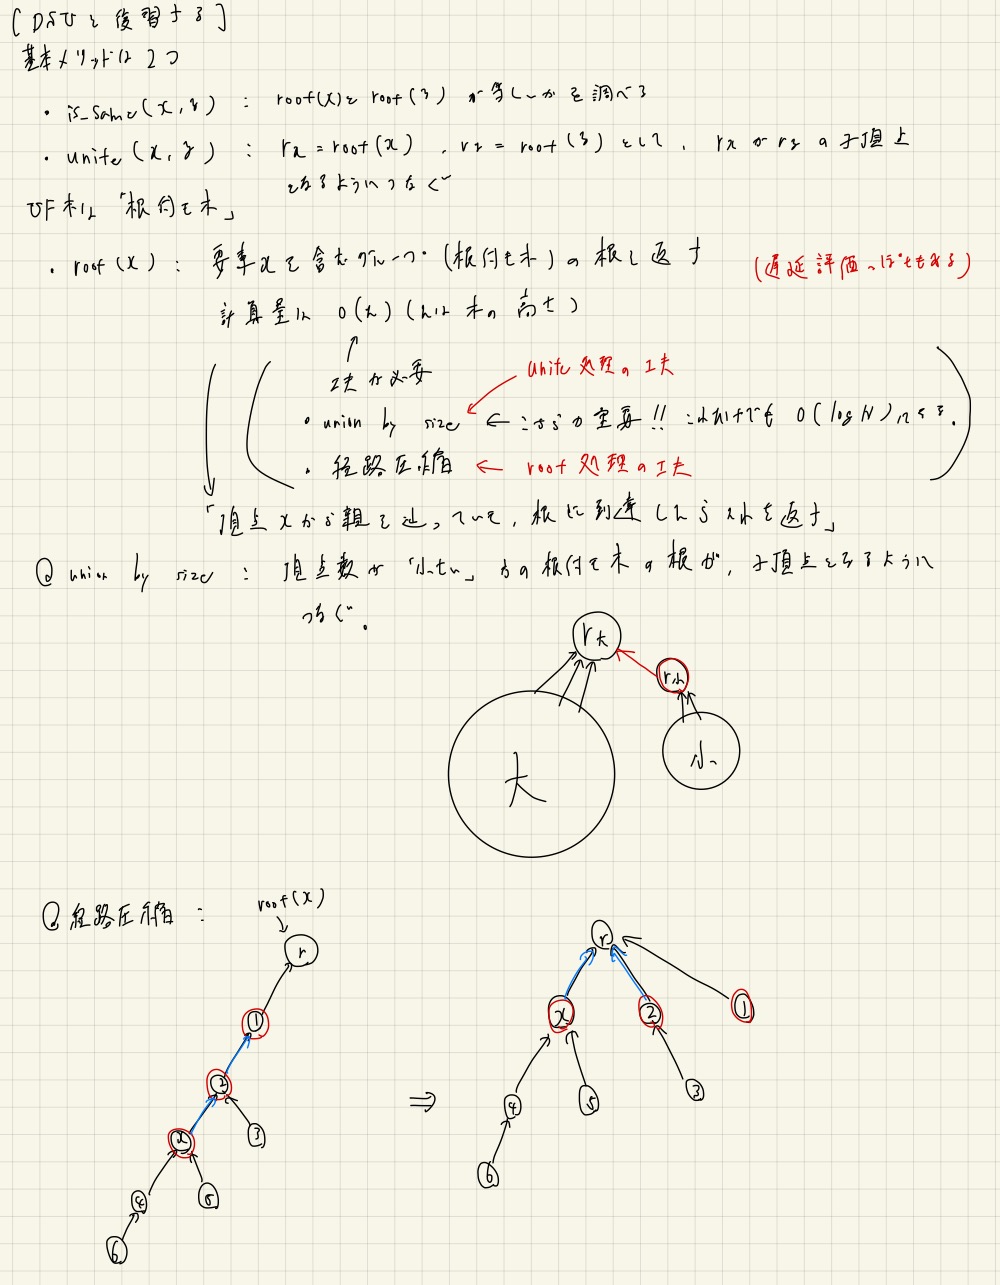 [DSUを復習する]
基本メリットは2つ
・is_same(x, y) : root(x)と root(y) が等しいかを調べる
・unite(x, y) : rx = root(x) , ry = root(y) として, rx が ry の子頂点
となるようにつなぐ
UF木は「根付き木」
・root(x) : 要素xを含むグループ(根付き木)の根を返す
(遅延評価っぽくもある)
計算量は O(h) (hは木の高さ)
工夫が必要
unite処理の工夫
・union by size ← こちらが重要!! これだけでも O(log N)になる.
・経路圧縮 ← root 処理の工夫
「頂点xから親を辿っていき, 根に到達したらそれを返す」
@ union by size : 頂点数が「小さい」方の根付き木の根が, 子頂点となるように
つなぐ.
r大
r小
大
小
@ 経路圧縮 :
root(x)
r
1
2
x
3
4
5
6
⇒
r
x
2
1
4
5
3
6